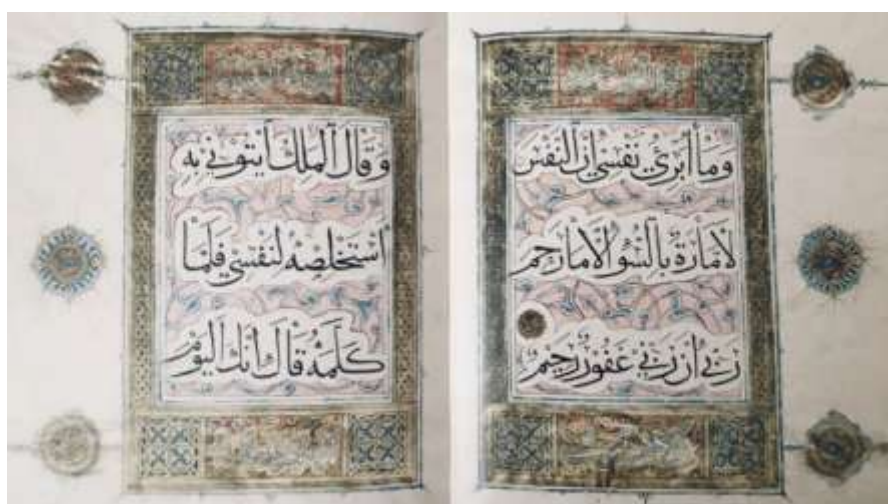 وما أبرئ نفسي إن النفس
لأمارة بالسو الا ما رحم
ربي ان ربي غفور رحيم
وقال الملك ايتوني به
استخلصه لنفسي فلما
كلمه قال انك اليوم